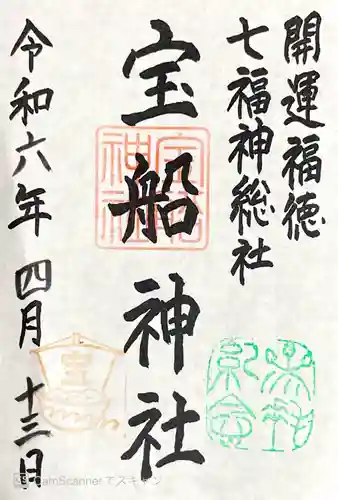 開運福徳
七福神総社
宝船神社
宝船神社
令和六年 四月 十三日
CamScannerでスキャン